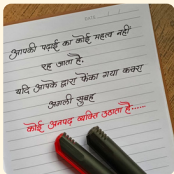 आपकी पढ़ाई का कोई महत्व नहीं
रह जाता है,
यदि आपके द्वारा फेंका गया कचरा
अगली सुबह
कोई अनपढ़ व्यक्ति उठाता है......